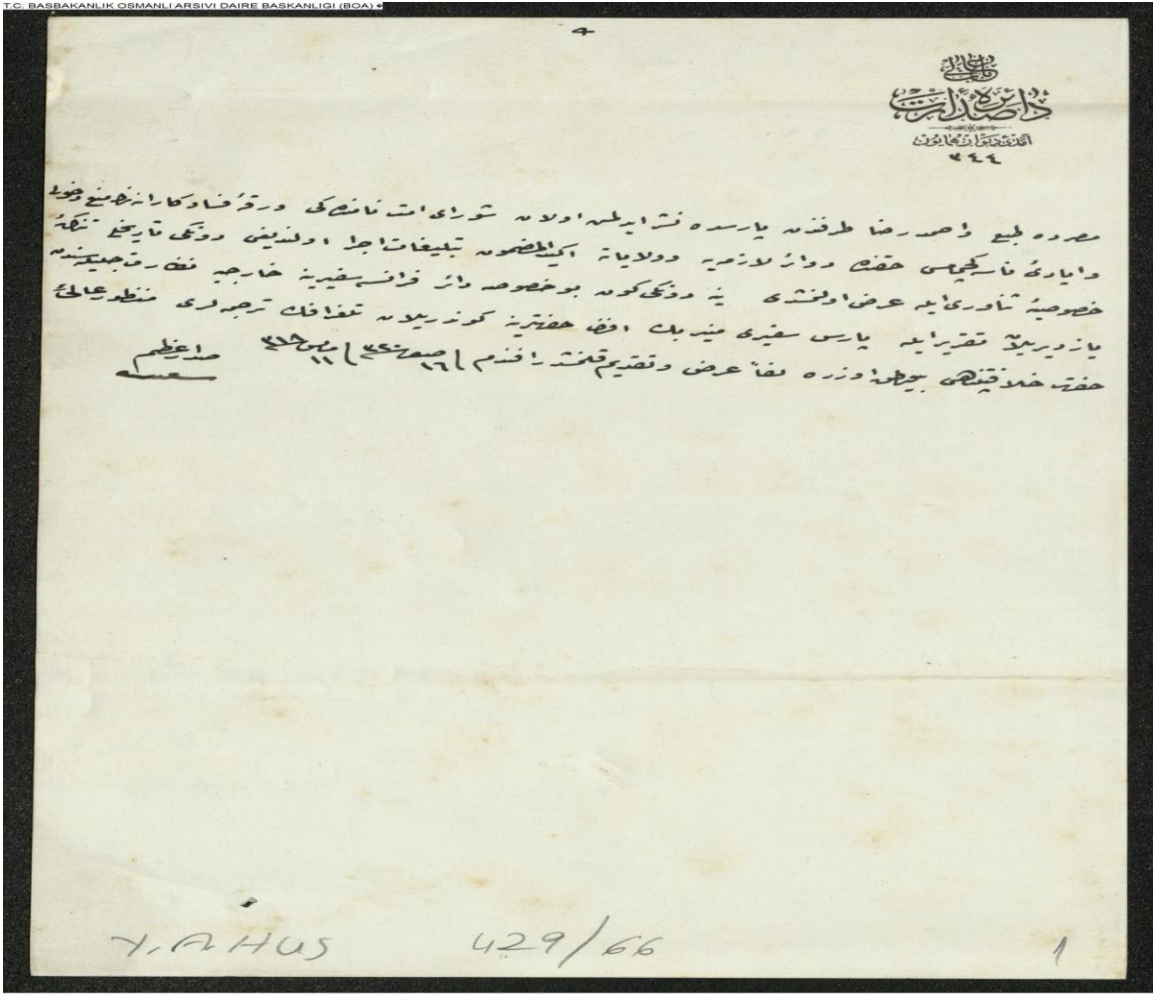 T.C. BASBAKANLIK OSMANLI ARSIVI DAIRE BASKANLIGI (BOA)
باب عالی
دائرهٔ صدارت
آمدی دیوان همایون
٣٤٤
مصرده طبع و احمد رضا طرفندن پارسده نشر ایدلمش اولان شورای امت نامنده‌كی ورقهٔ فسادكارانه‌نك منع دخولی
و ایادیٔ ناسه كچمامسی حقنده دوائر لازمه‌یه و ولایاته اكید المضمون تبلیغات اجرا اولندیغی دونكی تاریخلی تذكرهٔ
خصوصیهٔ ثناوری ایله عرض اولنمشدی ینه دونكی كون بو خصوصه دائر فرانسه سفیرینه خارجیه نظارت جلیله‌سندن
یازدیریلان تقریر ایله پارس سفیری منیر بك افندی حضرتلرینه كوندریلان تلغرافك ترجمه‌لری منظور عالئ
حضرت خلافتپناهی بیورلمق اوزره لفاً عرض و تقدیم قلنمشدر افندم
١٦ صفر ٣٢٠ ١١ ٣١٨
صدر اعظم
سعید
Y.A.HUS 429/66 1